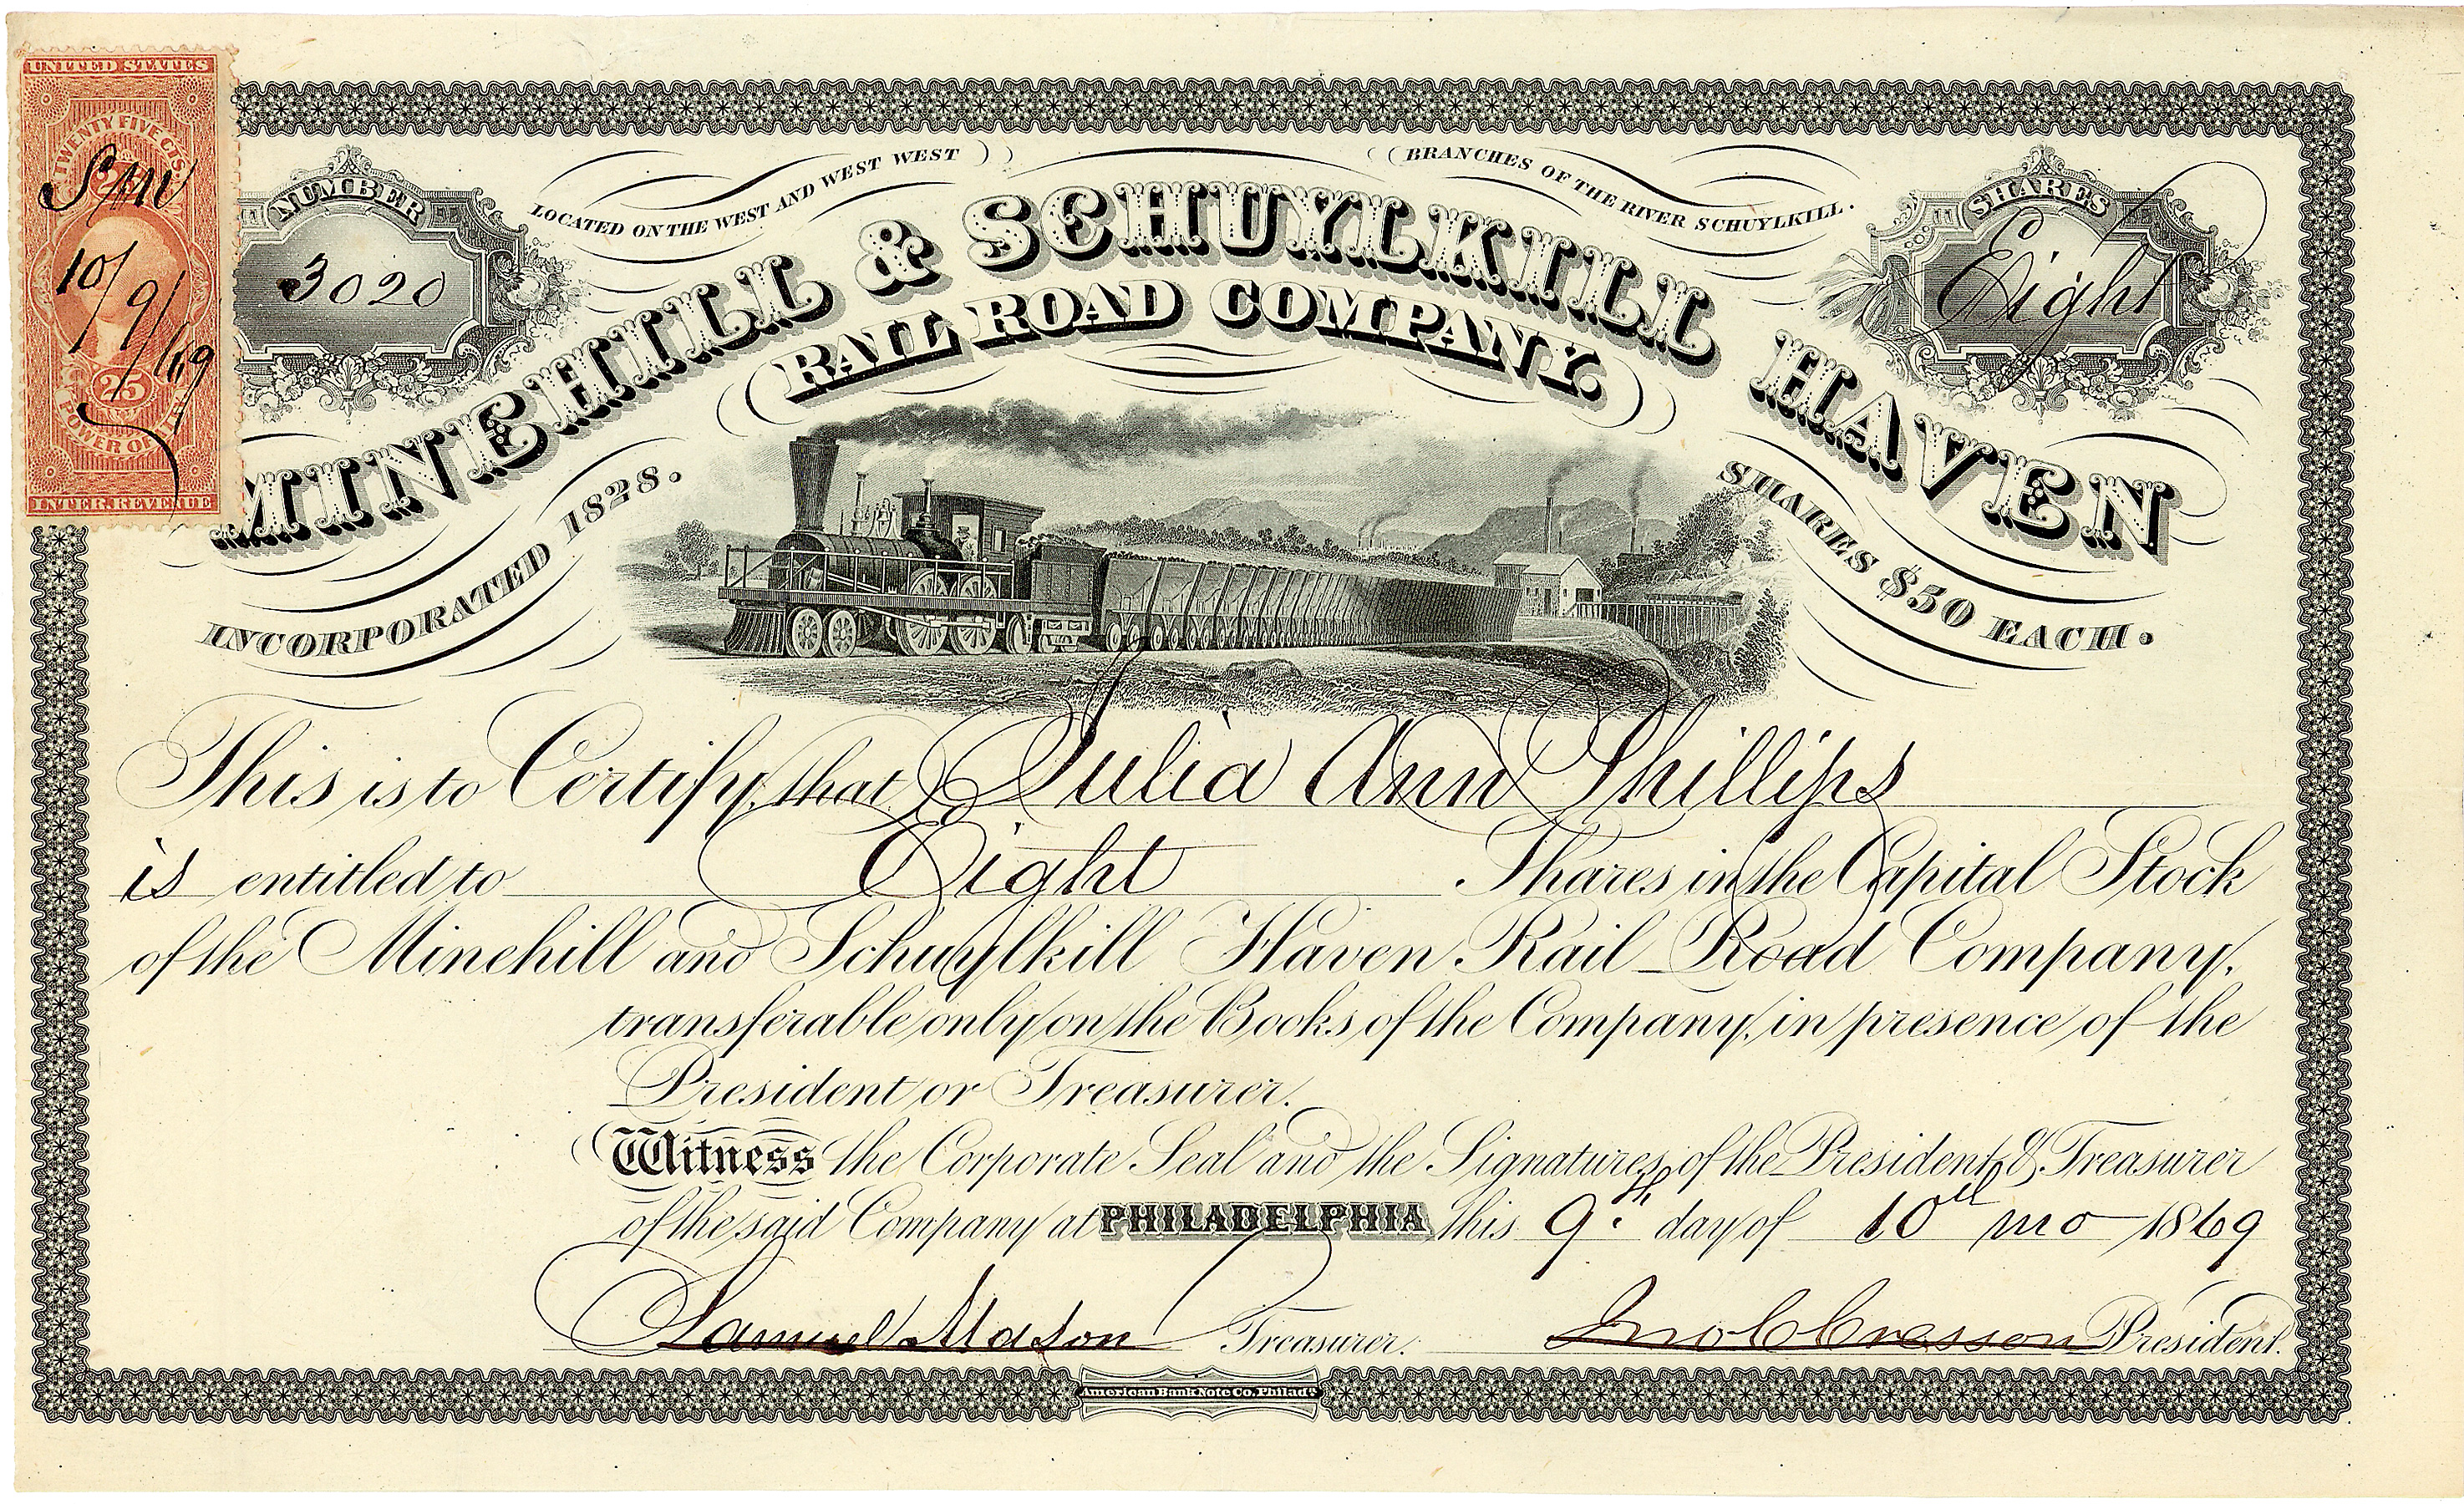 UNITED STATES
TWENTY FIVE CTS.
25
SM
10/9/69
25
POWER OF ATT'Y
INTER. REVENUE
NUMBER
3020
LOCATED ON THE WEST AND WEST WEST
BRANCHES OF THE RIVER SCHUYLKILL.
SHARES
Eight
MINEHILL & SCHUYLKILL HAVEN
RAIL ROAD COMPANY.
INCORPORATED 1828.
SHARES $50 EACH.
This is to Certify, that Julia Ann Phillips
is entitled to Eight Shares in the Capital Stock
of the Minehill and Schuylkill Haven Rail-Road Company,
transferable only on the Books of the Company, in presence of the
President or Treasurer.
Witness the Corporate Seal and the Signatures of the President & Treasurer
of the said Company at PHILADELPHIA this 9th day of 10th mo 1869
Samuel Mason Treasurer. Jno C Cresson President.
American Bank Note Co. Philada